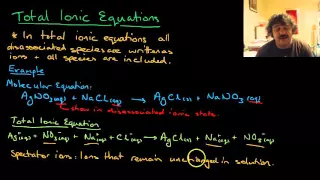 Total Ionic Equations
* In total ionic equations all
disassociated species are written as
ions + all species are included.
Example
Molecular Equation:
AgNO₃(aq) + NaCl(aq) → AgCl(s) + NaNO₃(aq)
in disassociated ionic state.
Total Ionic Equation
Ag⁺(aq) + NO₃⁻(aq) + Na⁺(aq) + Cl⁻(aq) → AgCl(s) + Na⁺(aq) + NO₃⁻(aq)
Spectator ions: Ions that remain unchanged in solution.